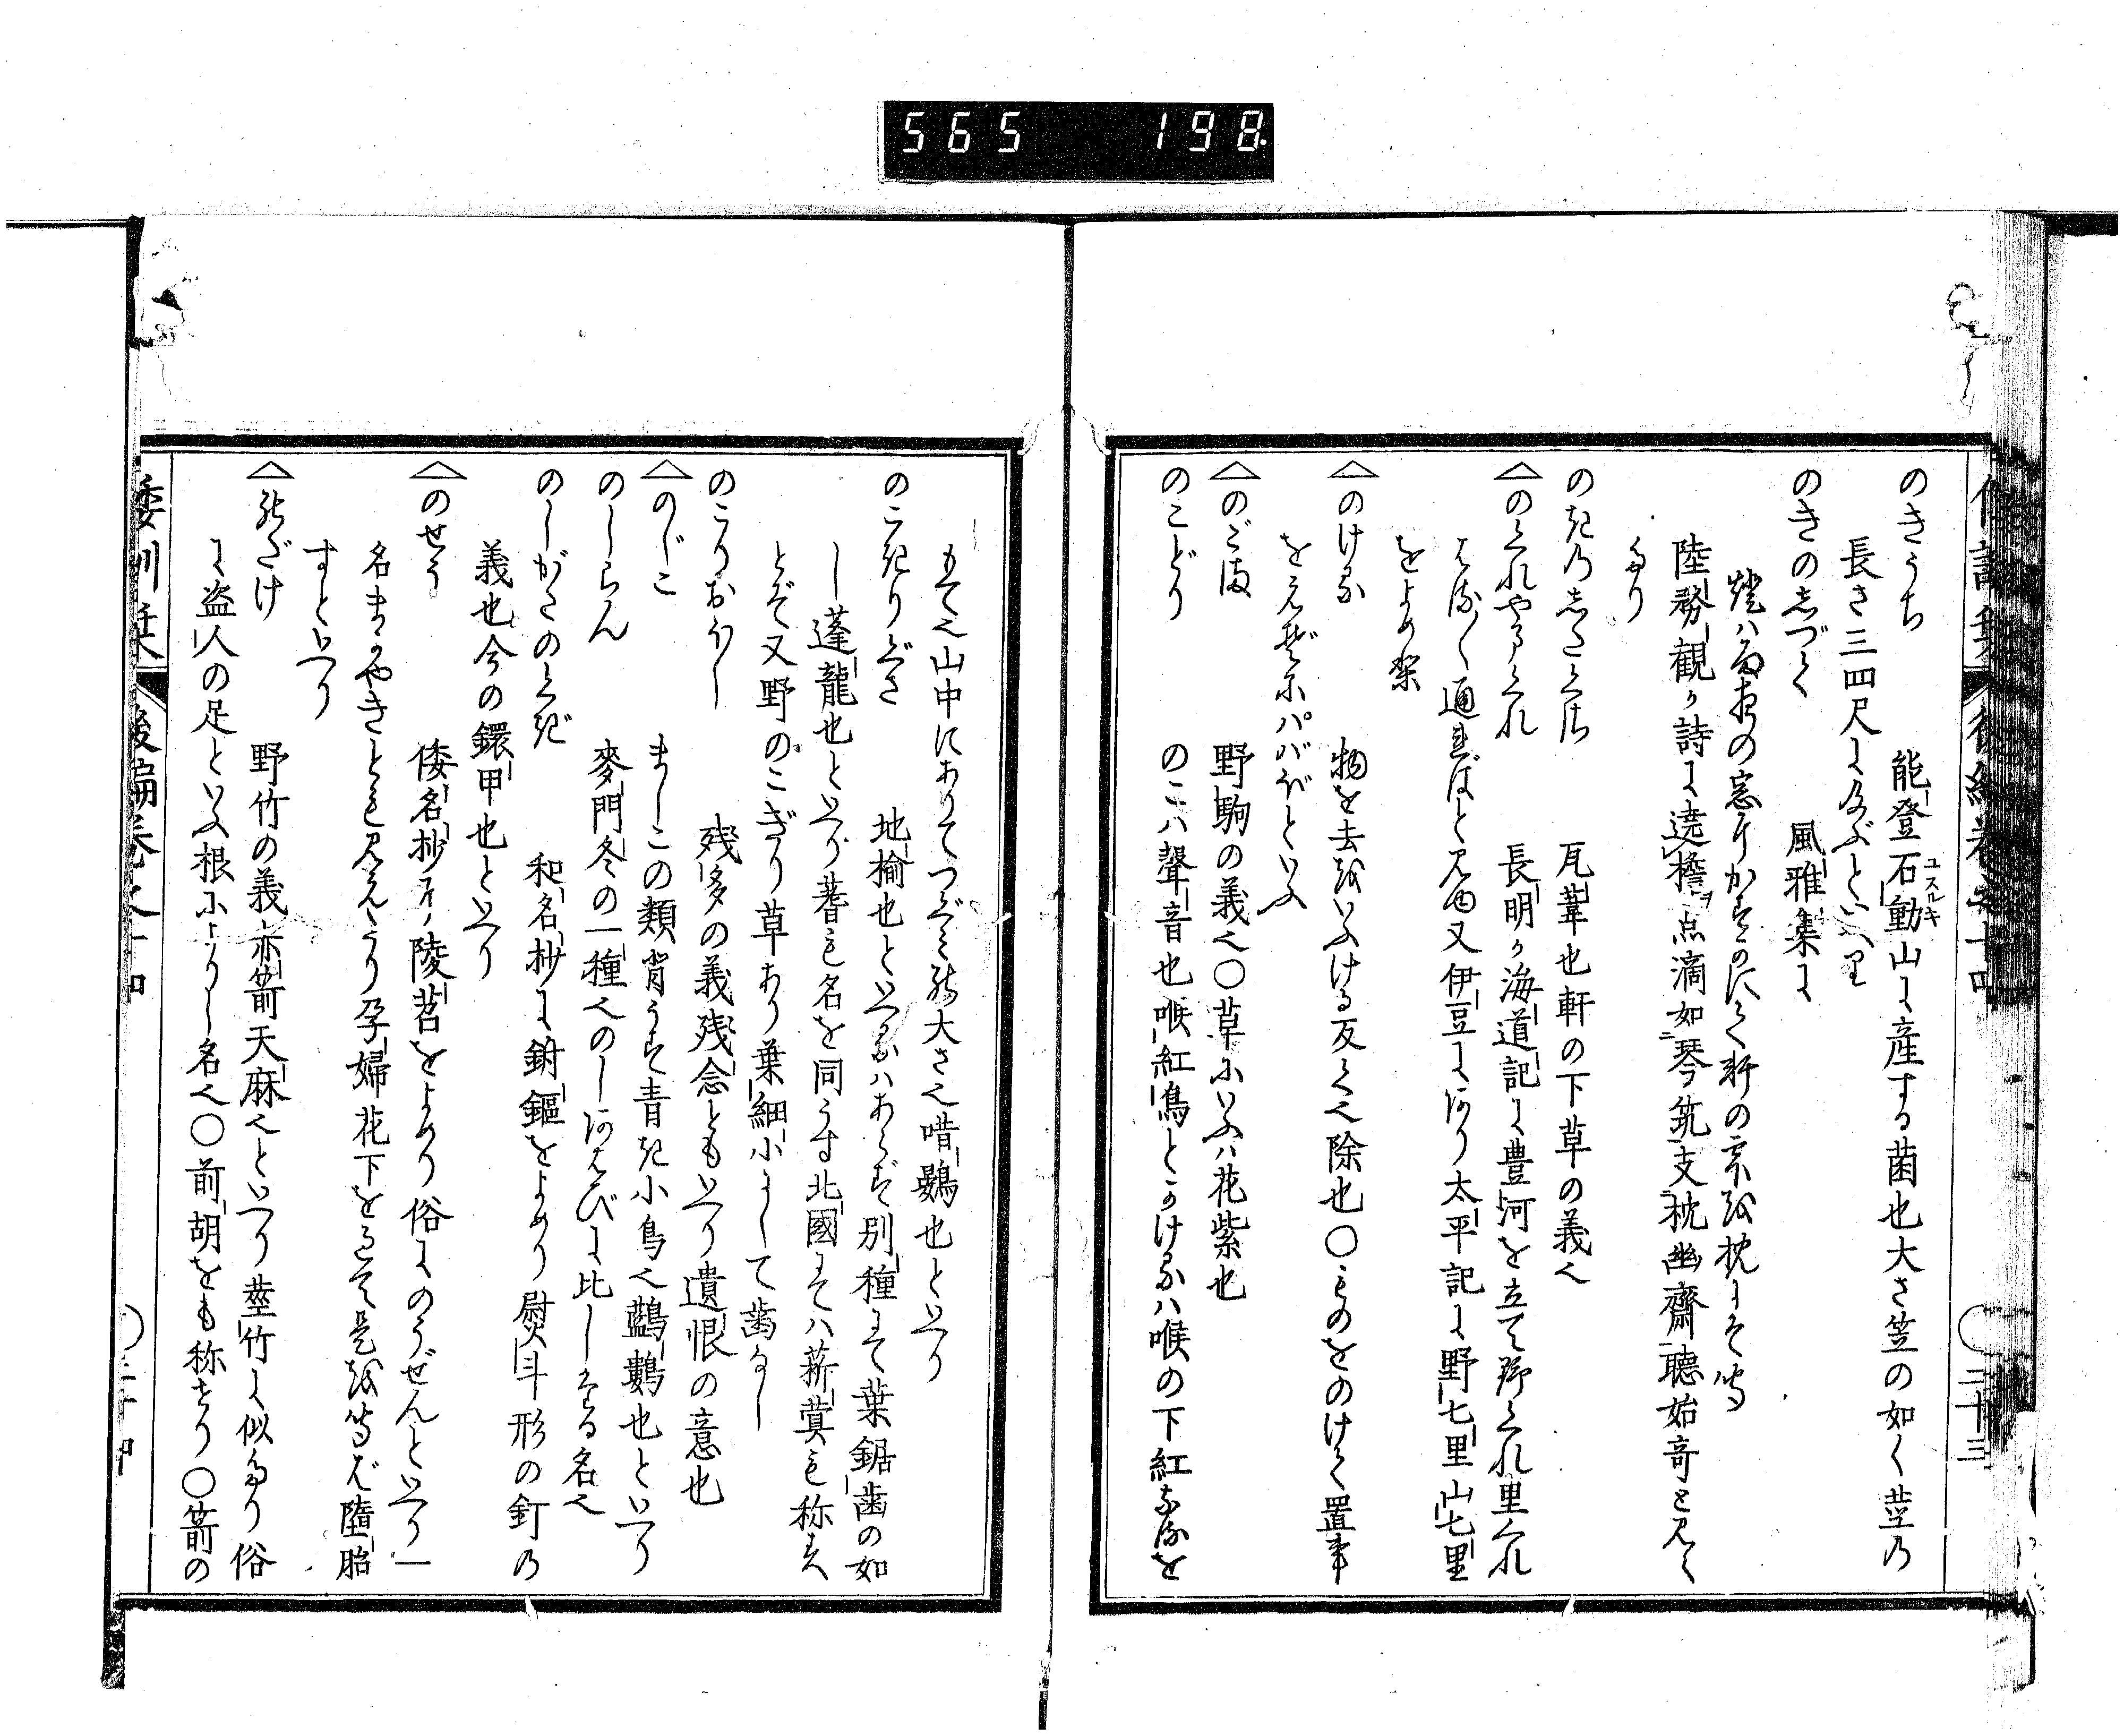 565 198
のきうち 能登石動山ユスルキに産する菌也大さ笠の如く茎乃
長さ三四尺に及ぶといへり
のきのしづく 風雅集に
燈ハ雨夜の窓にかすかにて軒の雫を枕にそきく
陸務観か詩に遶檐点滴如琴筑支枕幽齋聴始奇と見え
たり
のきのしたくさ 瓦葦也軒の下草の義也
△のくれやまくれ 長明か海道記に豊河を立て野くれ里くれ
はる〳〵通ればと見ゆ又伊豆にあり太平記に野七里山七里
をよめり
△のける 物を去をいふける反く也除也〇ものをのけて置事
をえぞにハバがといふ
△のごま 野駒の義也〇草にいふハ花紫也
のこどり のこハ聲音也喉紅鳥とかけるハ喉の下紅なるを
もて也山中にありてつぐみ程大さ也唶鷃也といへり
のこぎりぐさ 地楡也といへるハあらず別種にて葉鋸歯の如
し蓬龍也といへり蓍も名を同うす北國にてハ薪蓂も称す
とぞ又野のこぎり草あり葉細小にして歯なし
のこりおほし 残多の義残念ともいへり遺恨の意也
△のじこ ましこの類背うす青き小鳥也鸛鷜也といへり
のしらん 麥門冬の一種也のしあはびに比したる名也
のしがたのくぎ 和名抄に釘鏂をよめり熨斗形の釘乃
義也今の鐶甲也といへり
△のせう 倭名抄に陵苕をよめり俗にのうぜんといへり一
名まかやきとも見えたり孕婦花下を過て是を嗅ば堕胎
すといへり
△のだけ 野竹の義赤箭天麻也といへり莖竹に似たり俗
に盗人の足といふ根によりし名也〇前胡をも称せり〇箭の
倭訓栞 後編巻之十四 〇二十四
倭訓栞 後編巻之十四 〇二十三